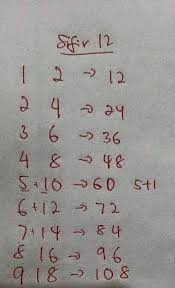 Sfir 12
1 2 → 12
2 4 → 24
3 6 → 36
4 8 → 48
5+10 → 60 5+1
6+12 → 72
7+14 → 84
8 16 → 96
9 18 → 108